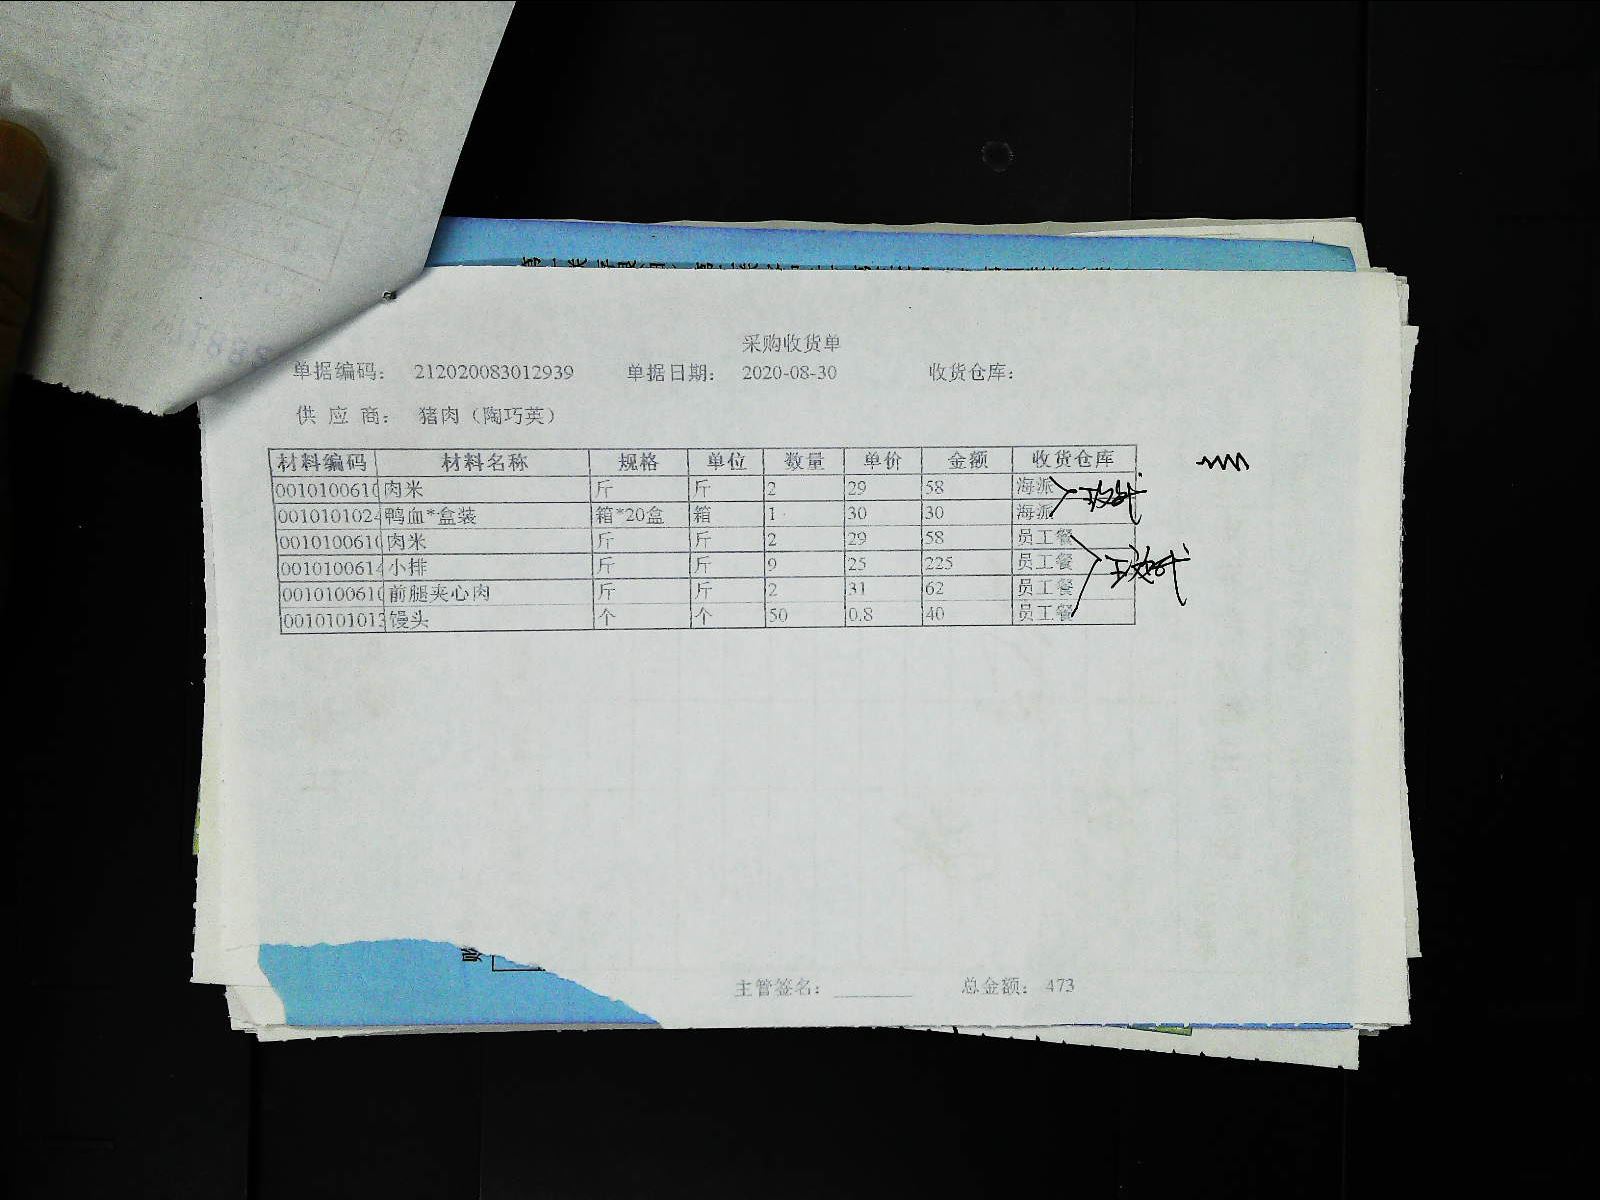 采购收货单
单据编码： 212020083012939 单据日期： 2020-08-30 收货仓库：
供 应 商： 猪肉（陶巧英）
材料编码 材料名称 规格 单位 数量 单价 金额 收货仓库
001010061 肉米 斤 斤 2 29 58 海派
001010102 鸭血*盒装 箱*20盒 箱 1 30 30 海派
001010061 肉米 斤 斤 2 29 58 员工餐
001010061 小排 斤 斤 9 25 225 员工餐
001010061 前腿夹心肉 斤 斤 2 31 62 员工餐
001010101 馒头 个 个 50 0.8 40 员工餐
主管签名： 总金额： 473